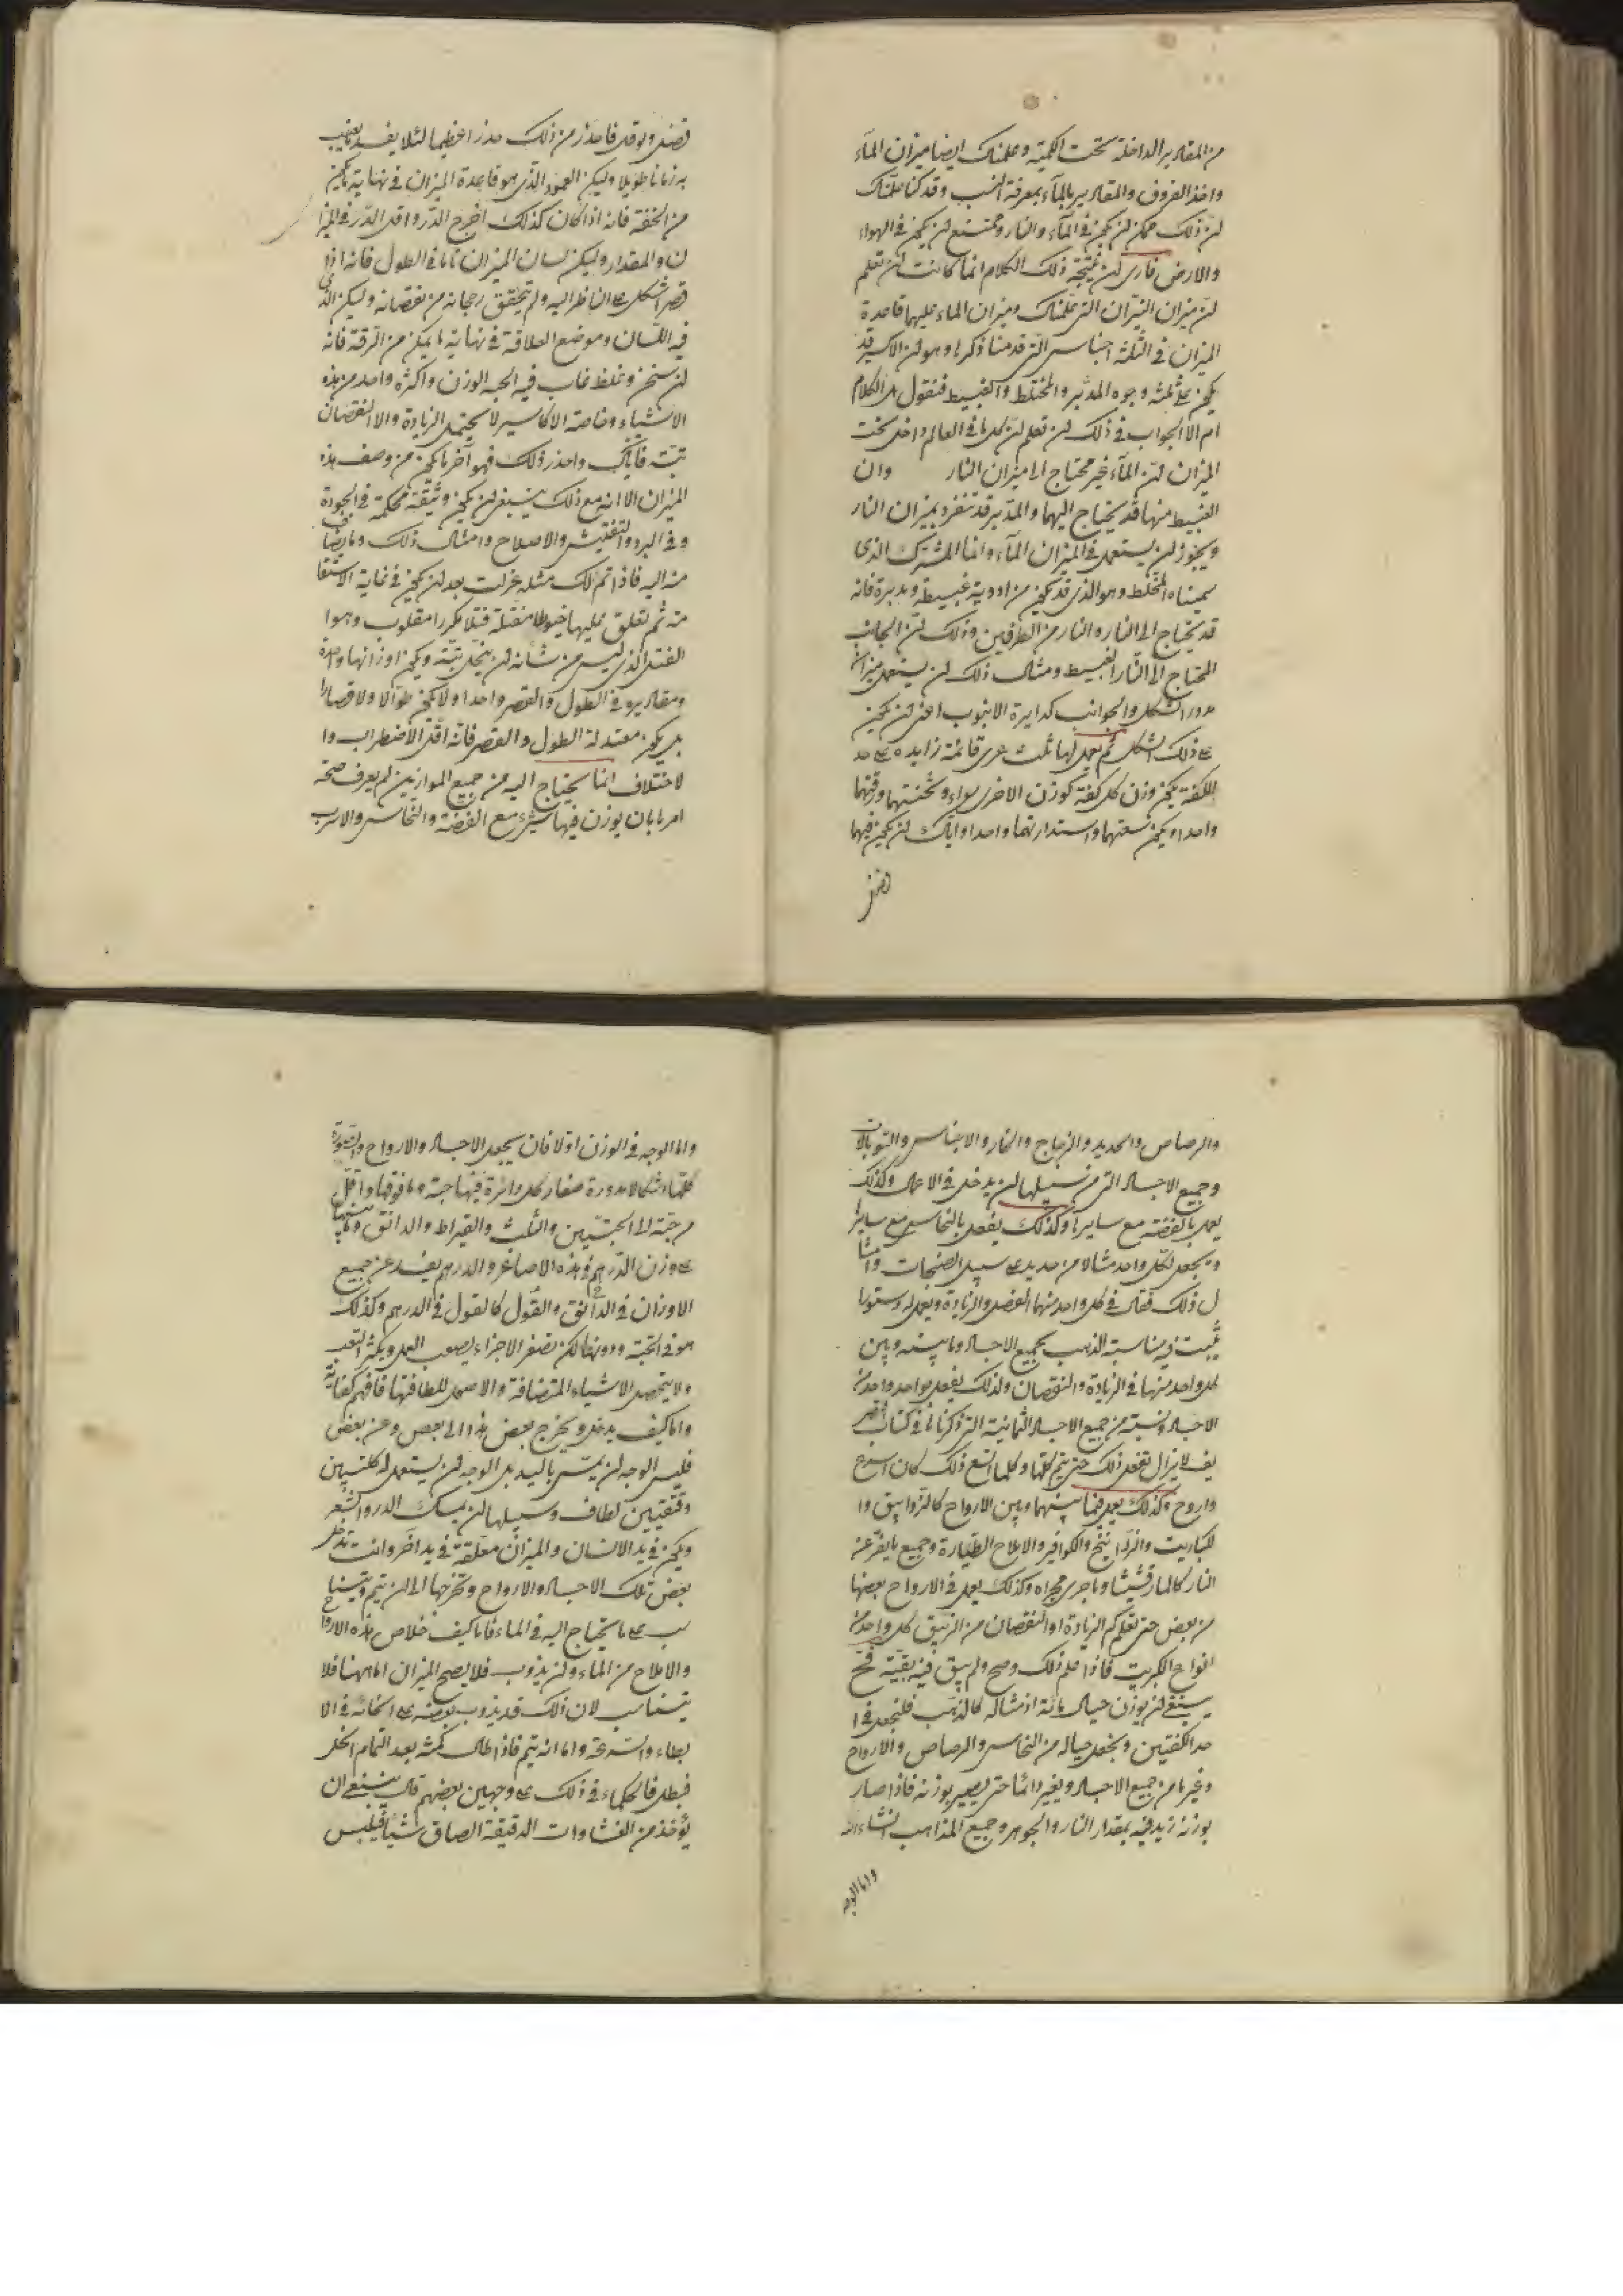 من المقادير الداخلة تحت الكمية وعلمناك ايضا ميزان المآء
واخذ الفروق والمقادير بالمآء بمعرفة النسب وقد كنا علمناك
لن ذلك ممكن لن يكون في المآء والنار وممتنع لن يكون في الهواء
والارض فارى لن نتيجة ذلك الكلام انما كانت لن تعلم
لن ميزان النيران التي علمناك وميزان الماء عليهما قاعدة
الميزان في الثلثة اجناس التي قدمنا ذكرها وهو لن الاكسير قد
يكون على ثلثة وجوه المدبر والمختلط والغبيط فنقول ان الكلام
ام الا الجواب في ذلك لن تعلم لن كل ما في العالم داخل تحت
الميزان لن المآء غير محتاج الى ميزان النار وان
الغبيط منها قد يحتاج اليهما والمدبر قد تنفرد بميزان النار
ويجوز لن يستعمل في الميزان المآء واما المشترك الذى
سميناه المختلط وهو الذى قد يكون من ادوية غبيطة ومدبرة فانه
قد يحتاج الى النار والنار من الطرفين وذلك لن الجانب
المحتاج الى النار الغبيط ومثال ذلك لن يستعمل ميزان
مدور الشكل والجوانب كدايرة الانبوب اعنى لن يكون
على ذلك الشكل ثم يعمل لها ثلث عرى قائمة زايدة على حد
الكفة يكون وزن كل كفة كوزن الاخرى سواء وثخنتهما ورقتهما
واحدا ويكون سعتهما واستدارتهما واحدا واياك لن يكون فيهما
فضل
فضل وتوقى فاحذر من ذلك حذرا عظيما لئلا يفسد بعيب
به زمانا طويلا وليكن العمود الذى هو قاعدة الميزان في نهاية ما يكون
من الخفة فانه اذا كان كذلك اخرج الذر واقل الذر في الميزا
ن والمقدار وليكن لسان الميزان تاما في الطول فانه اذا
قصر اشكل على الناظر اليه ولم يتحقق رجحانه من نقصانه وليكن الذى
فيه اللسان وموضع العلاقة في نهاية ما يمكن من الرقة فانه
لن سخن وغلظ غاب فيه الحبه الوزن واكثره واحد من هذه
الاشياء وخاصة الاكاسير لا يحتمل الزيادة والا النقصان
بتة فاياك واحذر ذلك فهو آخر ما يكون من وصف هذه
الميزان الا انه مع ذلك ينبغى لن يكون وثيقة محكمة في الجودة
وفي البرد والتفتيش والاصلاح وامثال ذلك وما يضاف
منه اليه فاذا تم لك مثله عزلت بعد لن يكون في غاية الاستقا
مة ثم تعلق عليها خيوطا مفتلة فتلا مكررا مقلوب وهوا
الفتل الذى ليس من شانه لن ينحل بتة ويكون اوزانها واحدة
ومقاديره في الطول والقصر واحدا ولا يكون طوالا ولا قصارا
بل يكون معتدلة الطول والقصر فانه اقل الاضطراب وا
لاختلاف انما يحتاج اليه من جميع الموازين لم يعرف صحة
امرها بان يوزن فيها شئ مع الفضة والنحاس والاسرب
والرصاص والحديد والزجاج والنار والاجناس والتوبالات
وجميع الاجساد التي من سبيلها لن يدخل في الاعمال وكذلك
يعمل بالفضة مع سايرها وكذلك يفعل بالنحاس مع سايرها
ويجعل لكل واحد مثالا من حديد على سبيل الصنجات وامثا
ل ذلك فقال في كل واحد منها الفضل والزيادة ويعمل له دستورا
يثبت فيه مناسبة الذهب بجميع الاجساد وما بينه وبين
كل واحد منها في الزيادة والنقصان ولذلك يفعل بواحد واحد من
الاجساد ونسبة من جميع الاجساد الثمانية التي ذكرناها في كتاب
يف لا يزال يفعل ذلك حتى يتم كلها وكلما اتسع ذلك كان اسرع
واروح وكذلك يعمل فيما بينهما وبين الارواح كالزوابيق وا
لكباريت والزرانيخ والكوافير والاملاح الطيارة وجميع ما يفر عن
النار كالمارقشيثا وما جرى مجراه وكذلك يعمل في الارواح بعضها
من بعض حتى تعلم كم الزيادة او النقصان من الزيبق كل واحد من
انواع الكبريت فاذا علم ذلك وصح ولم يبق فيه بقية
ينبغى لن يوزن حيال ما ئة اذ مثاله كالذهب فليجعل في ا
حد الكفتين ويجعل حياله من النحاس والرصاص والارواح
وغيرها من جميع الاجساد ويغير دائما حتى يصير بوزنه فاذا صار
بوزنه زيد فيه بمقدار النار والجوهر وجميع المذاهب انشاء الله
واما الوجه
واما الوجه في الوزن اولا فان يجعل الاجساد والارواح والمدورة
كلها اشكالا مدورة صغار كل دائرة فيها حبة وما فوقها واقل
من حبة الى الحبتين والثلث والقيراط والدانق وما بينها
على وزن الدرهم في هذه الاصاغر والدرهم يفسد عن جميع
الاوزان في الدانق والقول كالقول في الدرهم وكذلك
هو في الحبة ودونها لكن تصغر الاجزاء يصعب العمل ويكثر التعب
ولا يتحصل الاشياء المتضافة والاصل للطافتها فافهم كفاية
واما كيف يدخل ويخرج بعض هذا الى بعض وعن بعض
فليس الوجه لن يمس باليد بل الوجه لن يستعمل له كلبتين
دقيقتين لطاف وسبيلها لن يمسك الذر والشعر
ويكون في يد الانسان والميزان معلقة في يد اخر وانت تدخل
بعض تلك الاجساد والارواح وتخرجها الى لن يتم ويتناس
ب على ما يحتاج اليه في الماء فاما كيف خلاص هذه الارواح
والاملاح من الماء ولن يذوب فلا يصح الميزان اما ههنا فلا
يتناسب لان ذلك قد يذوب بعضه على امكانه في الا
بطاء والسرعة واما انه يتم فاذا طال مكثه بعد التمام انحل
فبطل فالحكماء في ذلك على وجهين بعضهم قال ينبغى ان
يؤخذ من الغشاوات الدقيقة الصاق شيئا فيلبس